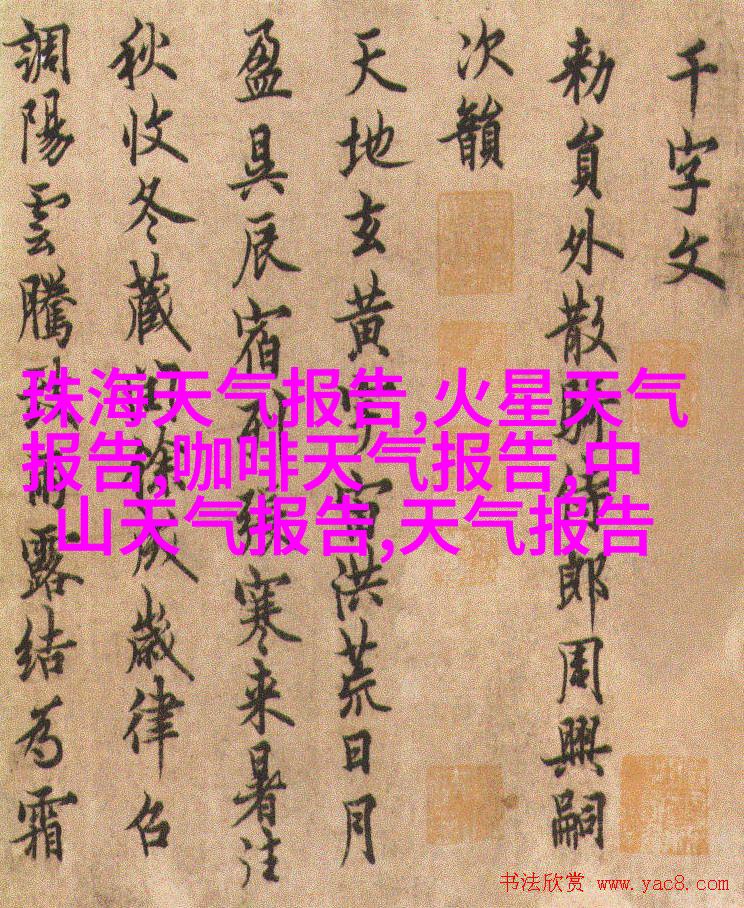 千字文
勅員外散騎侍郎周興嗣
次韻
天地玄黃宇宙洪荒日月
盈昃辰宿列張寒来暑往
秋收冬藏閏餘成歲律召
調陽雲騰致雨露結為霜
珠海天气报告,火星天气
报告,咖啡天气报告,中
山天气报告,天气报告
书法欣赏 www.yac8.com